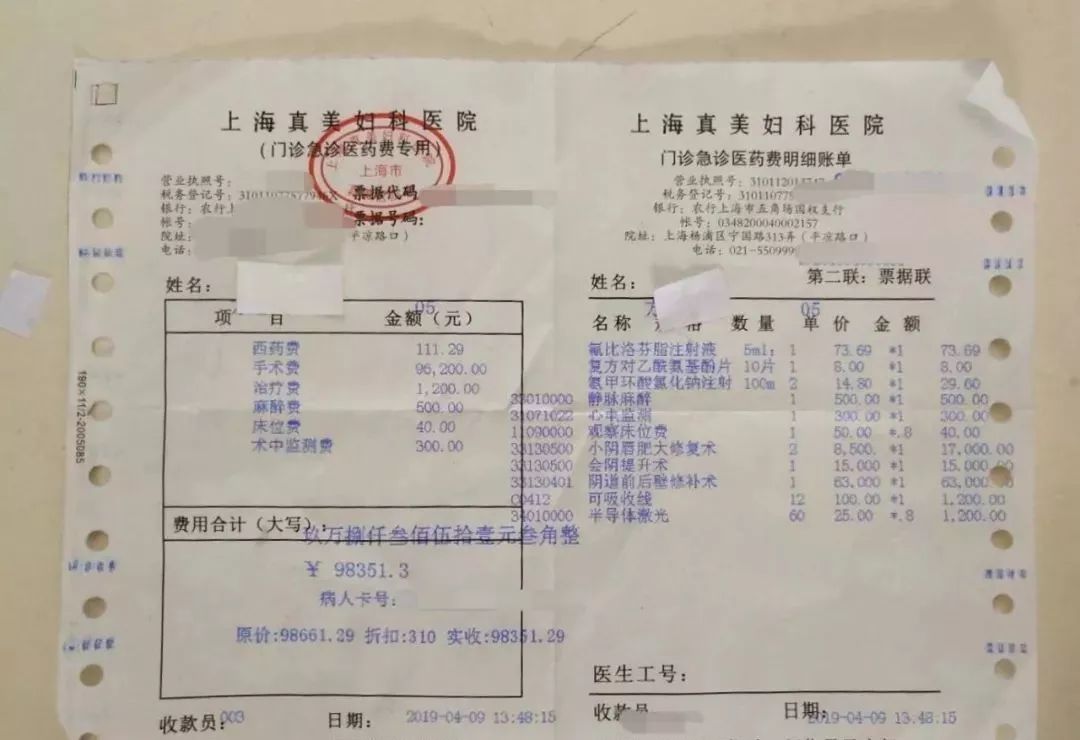 上海真美妇科医院
（门诊急诊医药费专用）
上海市
营业执照号：
税务登记号：
票据代码
银行：农行上
票据号码：
帐号：
院址：
平凉路口）
电话：
姓名：
05
项 目 金额（元）
西药费 111.29
手术费 96,200.00
治疗费 1,200.00
麻醉费 500.00
床位费 40.00
术中监测费 300.00
费用合计（大写）：
玖万捌仟叁佰伍拾壹元叁角整
¥ 98351.3
病人卡号：
原价:98661.29 折扣:310 实收:98351.29
收款员：003 日期： 2019-04-09 13:48:15
190×11/2-2005085
上海真美妇科医院
门诊急诊医药费明细账单
营业执照号：
税务登记号：
银行：农行上海市五角场国权支行
帐号：0348200040002157
院址：上海杨浦区宁国路313弄（平凉路口）
电话：021-5509999
姓名： 第二联：票据联
05
名称 数量 单价 金额
氟比洛芬脂注射液 5ml: 1 73.69 *1 73.69
复方对乙酰氨基酚片 10片 1 8.00 *1 8.00
氨甲环酸氯化钠注射 100m 2 14.80 *1 29.60
33010000 静脉麻醉 1 500.00 *1 500.00
31071022 心电监测 1 300.00 *1 300.00
11090000 观察床位费 1 50.00 *.8 40.00
33130500 小阴唇肥大修复术 2 8,500. *1 17,000.00
33130500 会阴提升术 1 15,000 *1 15,000.00
33130401 阴道前后壁修补术 1 63,000 *1 63,000.00
C0412 可吸收线 12 100.00 *1 1,200.00
34010000 半导体激光 60 25.00 *.8 1,200.00
医生工号：
收款员 日期：2019-04-09 13:48:15